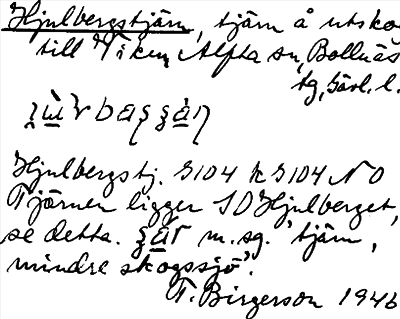 Hjulbergstjärn, tjärn å utskog
till Alfta sn, Bollnäs
tg, Gävl. l.
Hjulbergstj. 3104 k 3104 NO
Tjärnen ligger SO Hjulberget,
se detta. m. sg. 'tjärn,
mindre skogssjö'.
F. Birgerson 1946